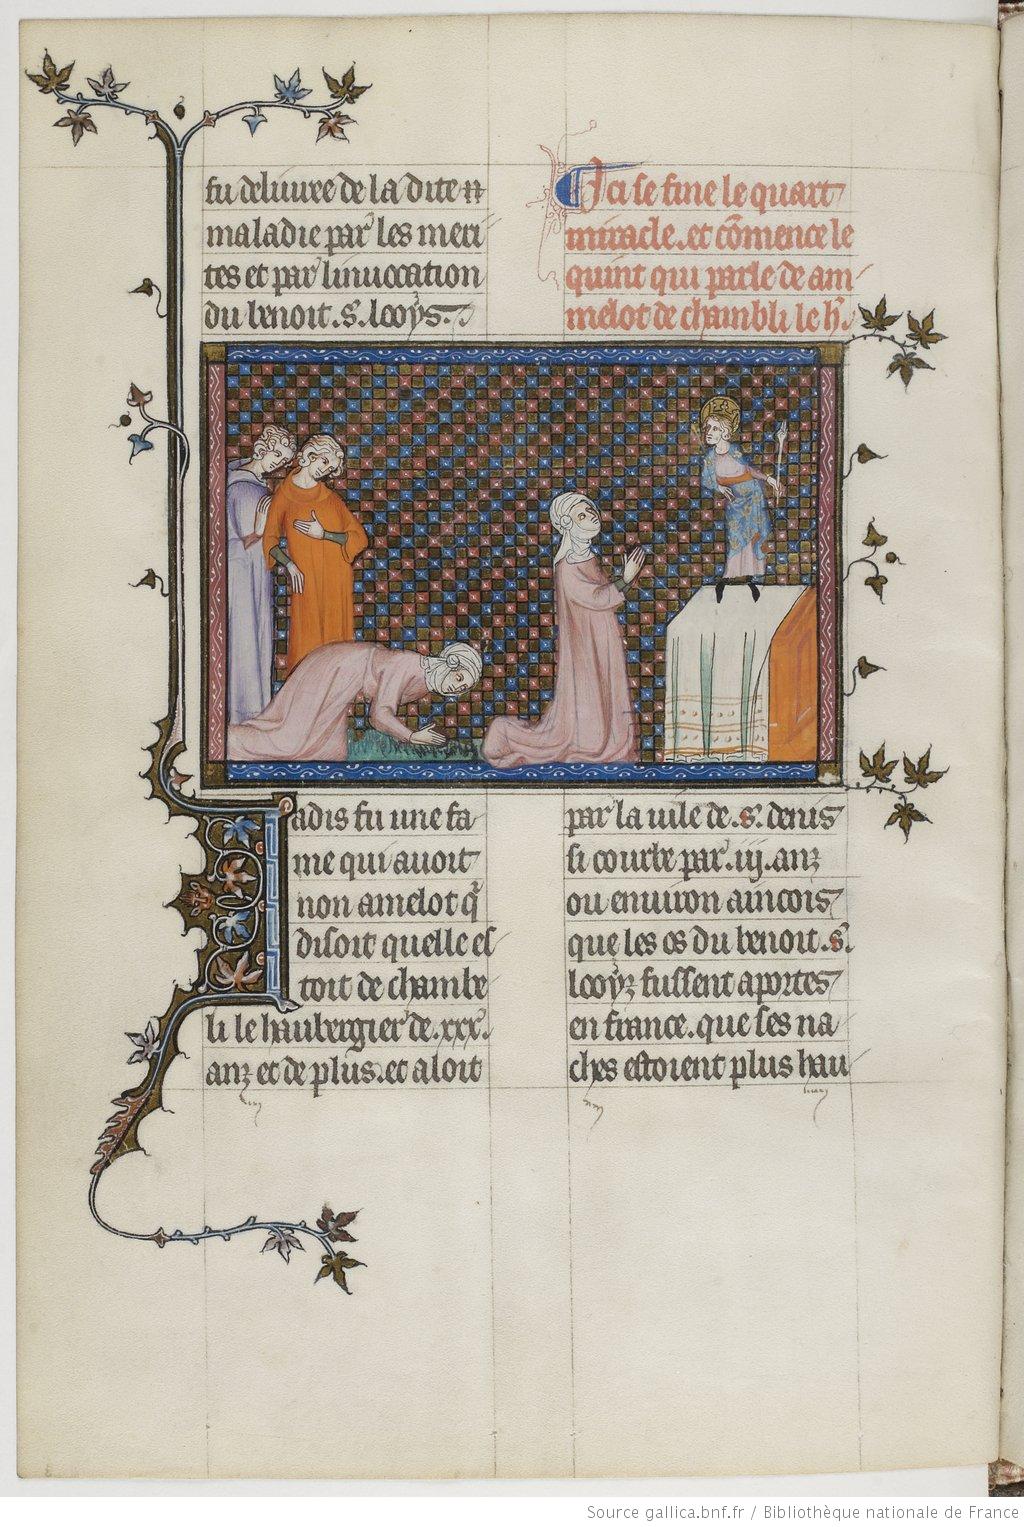 fu deliure de la dite
maladie par les meri
tes et par linuocation
du benoit .s. looys.
Ici se fine le quart
miracle. et cōmence le
quint qui parle de am
melot de chambli le h̕.
Iadis fu une fa
me qui auoit
non amelot q̄
disoit quelle es
toit de chambe
li le haubergier de .xxx.
anz et de plus. et aloit
par la uile de .s. denis
si courbe par .iij. anz
ou enuiron aincois
que les os du benoit .s.
looyz fussent aportes
en france. que ses na
ches estoient plus hau
Source gallica.bnf.fr / Bibliothèque nationale de France